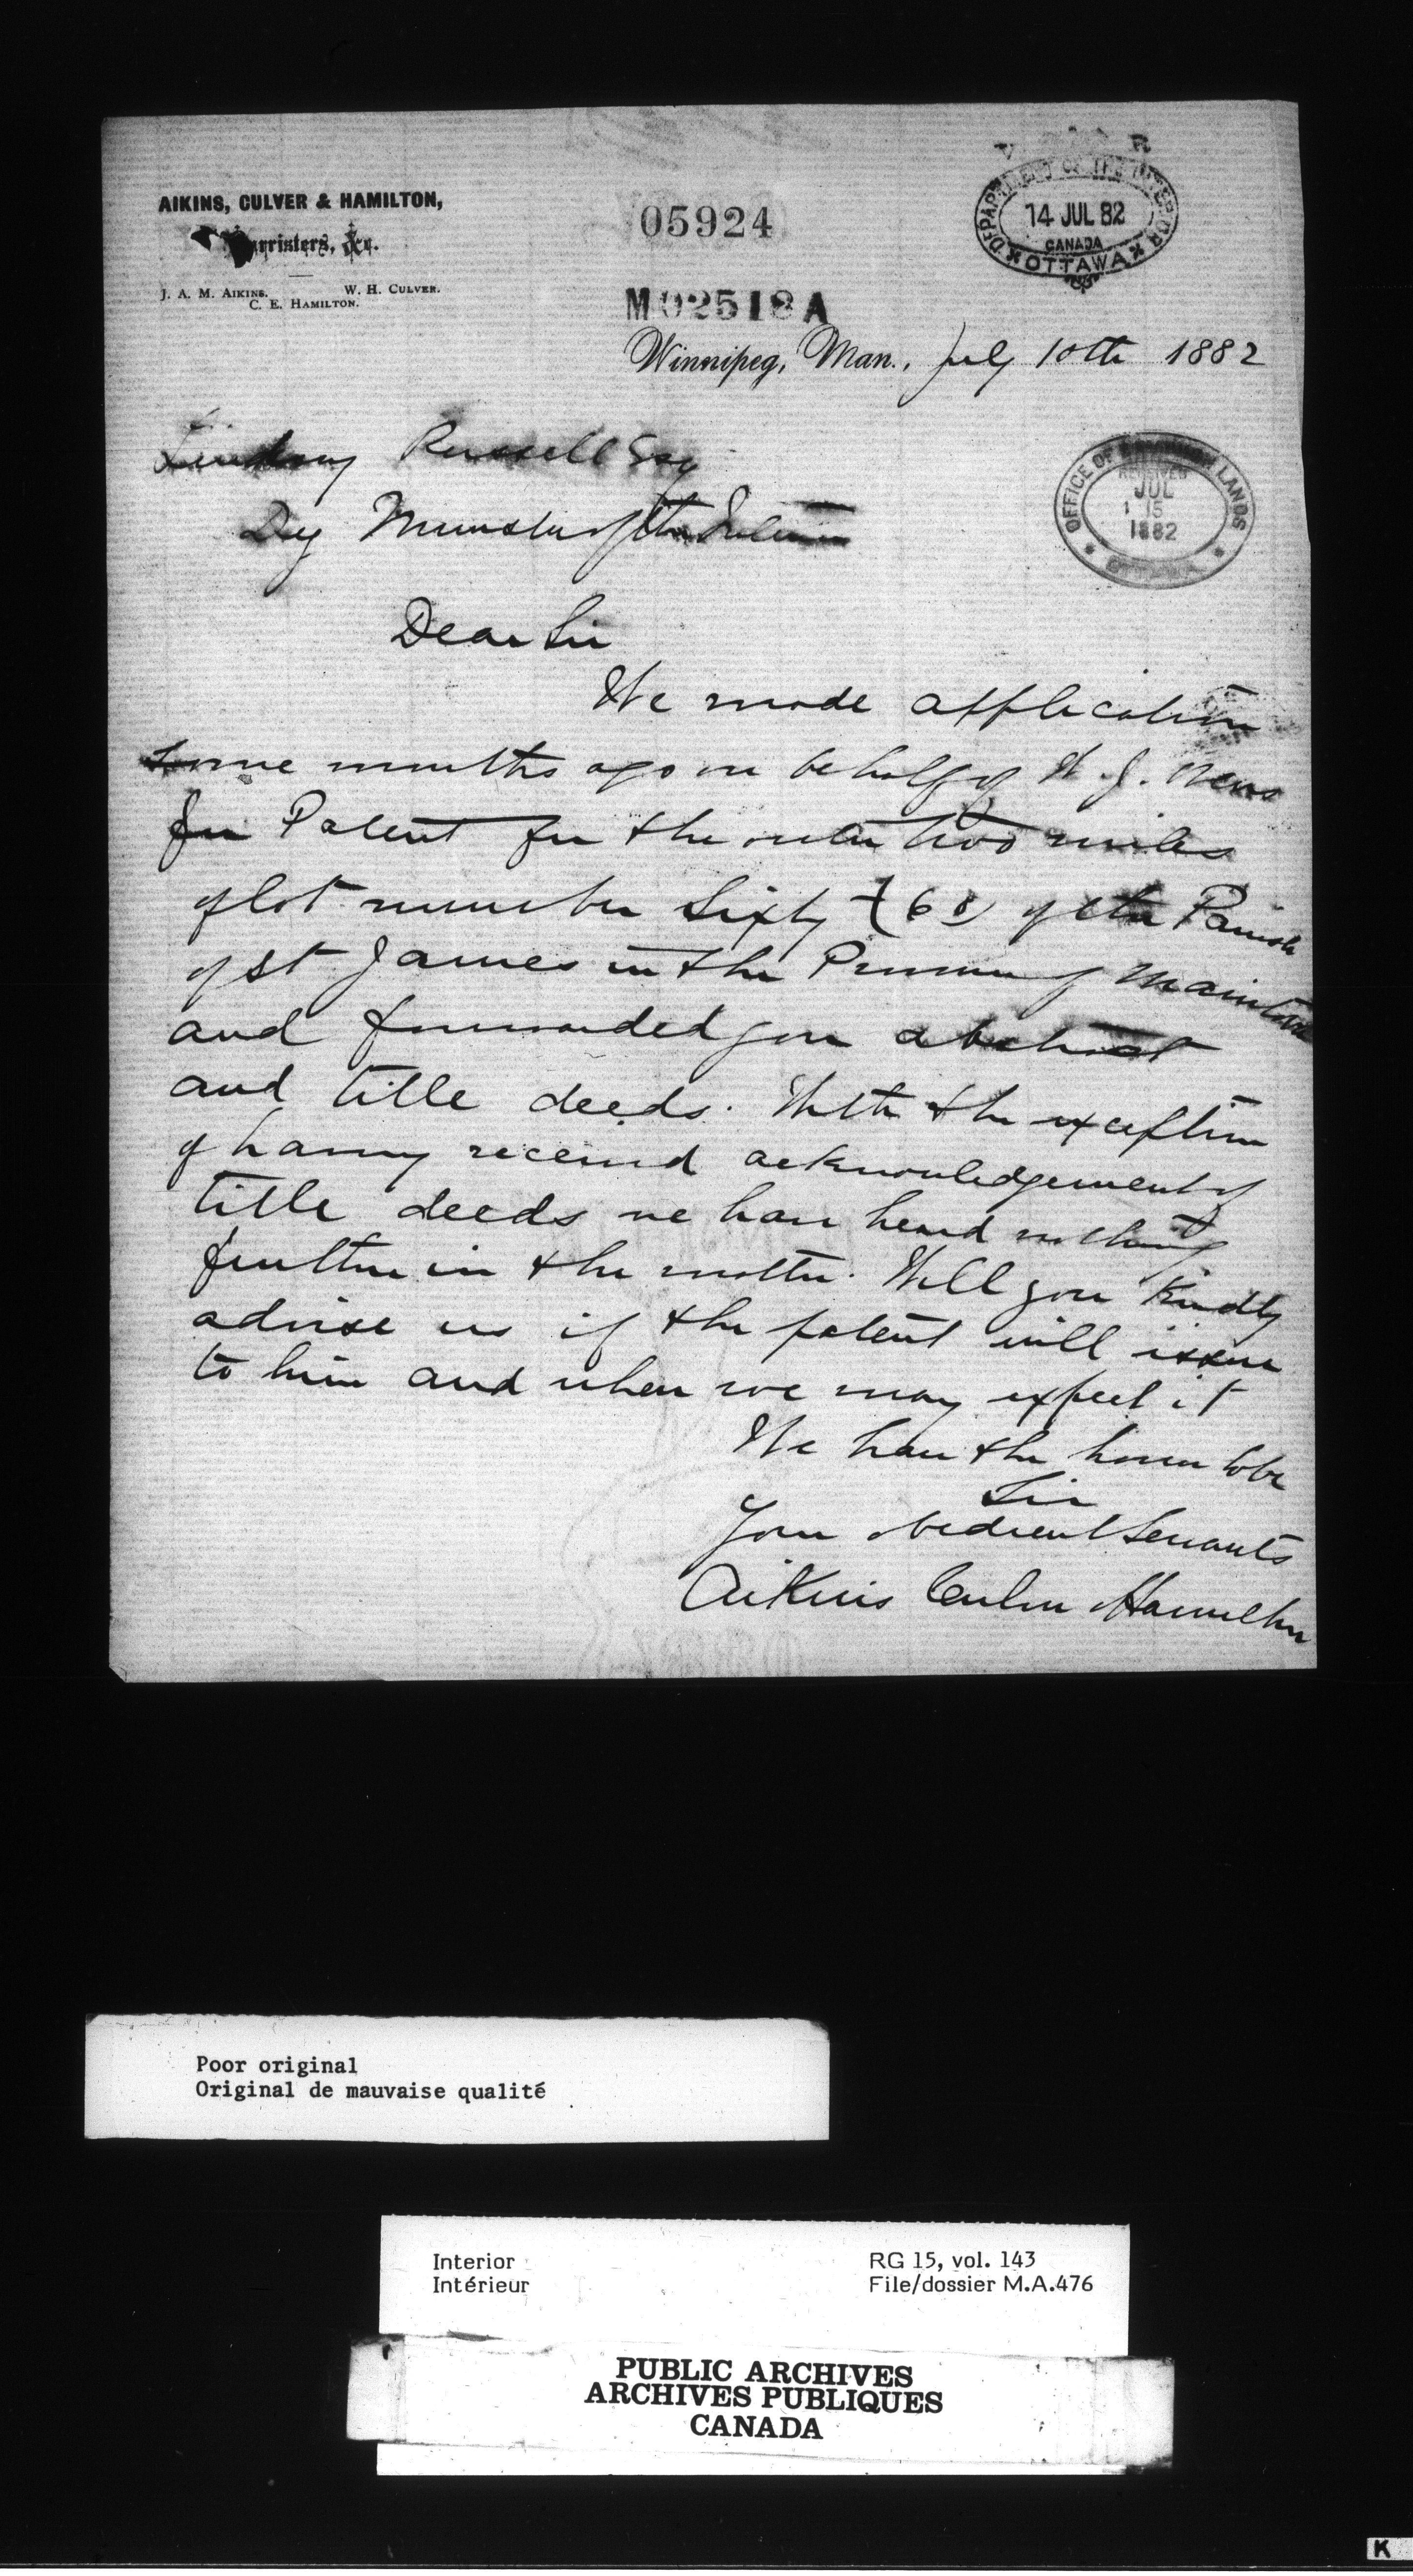 AIKINS, CULVER & HAMILTON,
Barristers, &c.
J. A. M. AIKINS. W. H. CULVER.
C. E. HAMILTON.
05924
DEPARTMENT OF THE INTERIOR
14 JUL 82
CANADA
OTTAWA
M02518A
Winnipeg, Man., July 10th 1882
OFFICE OF DOMINION LANDS
RECEIVED
JUL
15
1882
Lindsay Russell Esq
Dy Minister of the Interior
Dear Sir
We made application
some months ago on behalf of W. J.
for Patent for the outer two miles
of lot number Sixty (60) of the Parish
of St James in the Province of Manitoba
and forwarded you abstract
and title deeds. With the exception
of having received acknowledgement of
title deeds we have heard nothing
further in the matter. Will you kindly
advise us if the patent will issue
to him and when we may expect it
We have the honor to be
Sir
Your obedient Servants
Aikins Culver & Hamilton
Poor original
Original de mauvaise qualité
Interior
Intérieur
RG 15, vol. 143
File/dossier M.A.476
PUBLIC ARCHIVES
ARCHIVES PUBLIQUES
CANADA
K